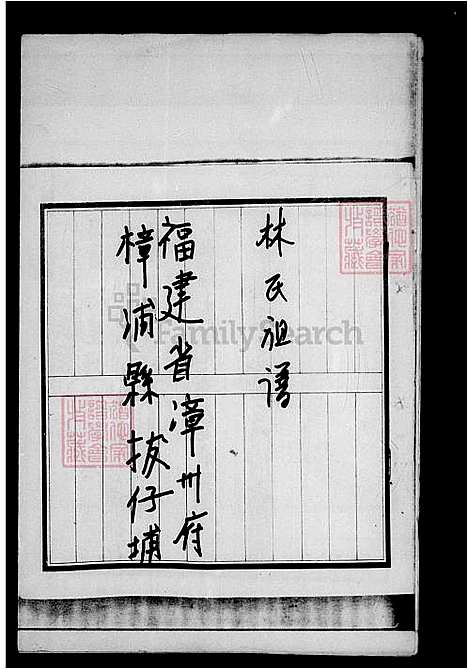 林氏祖谱
福建省漳州府
樟浦縣拔仔埔
FamilySearch